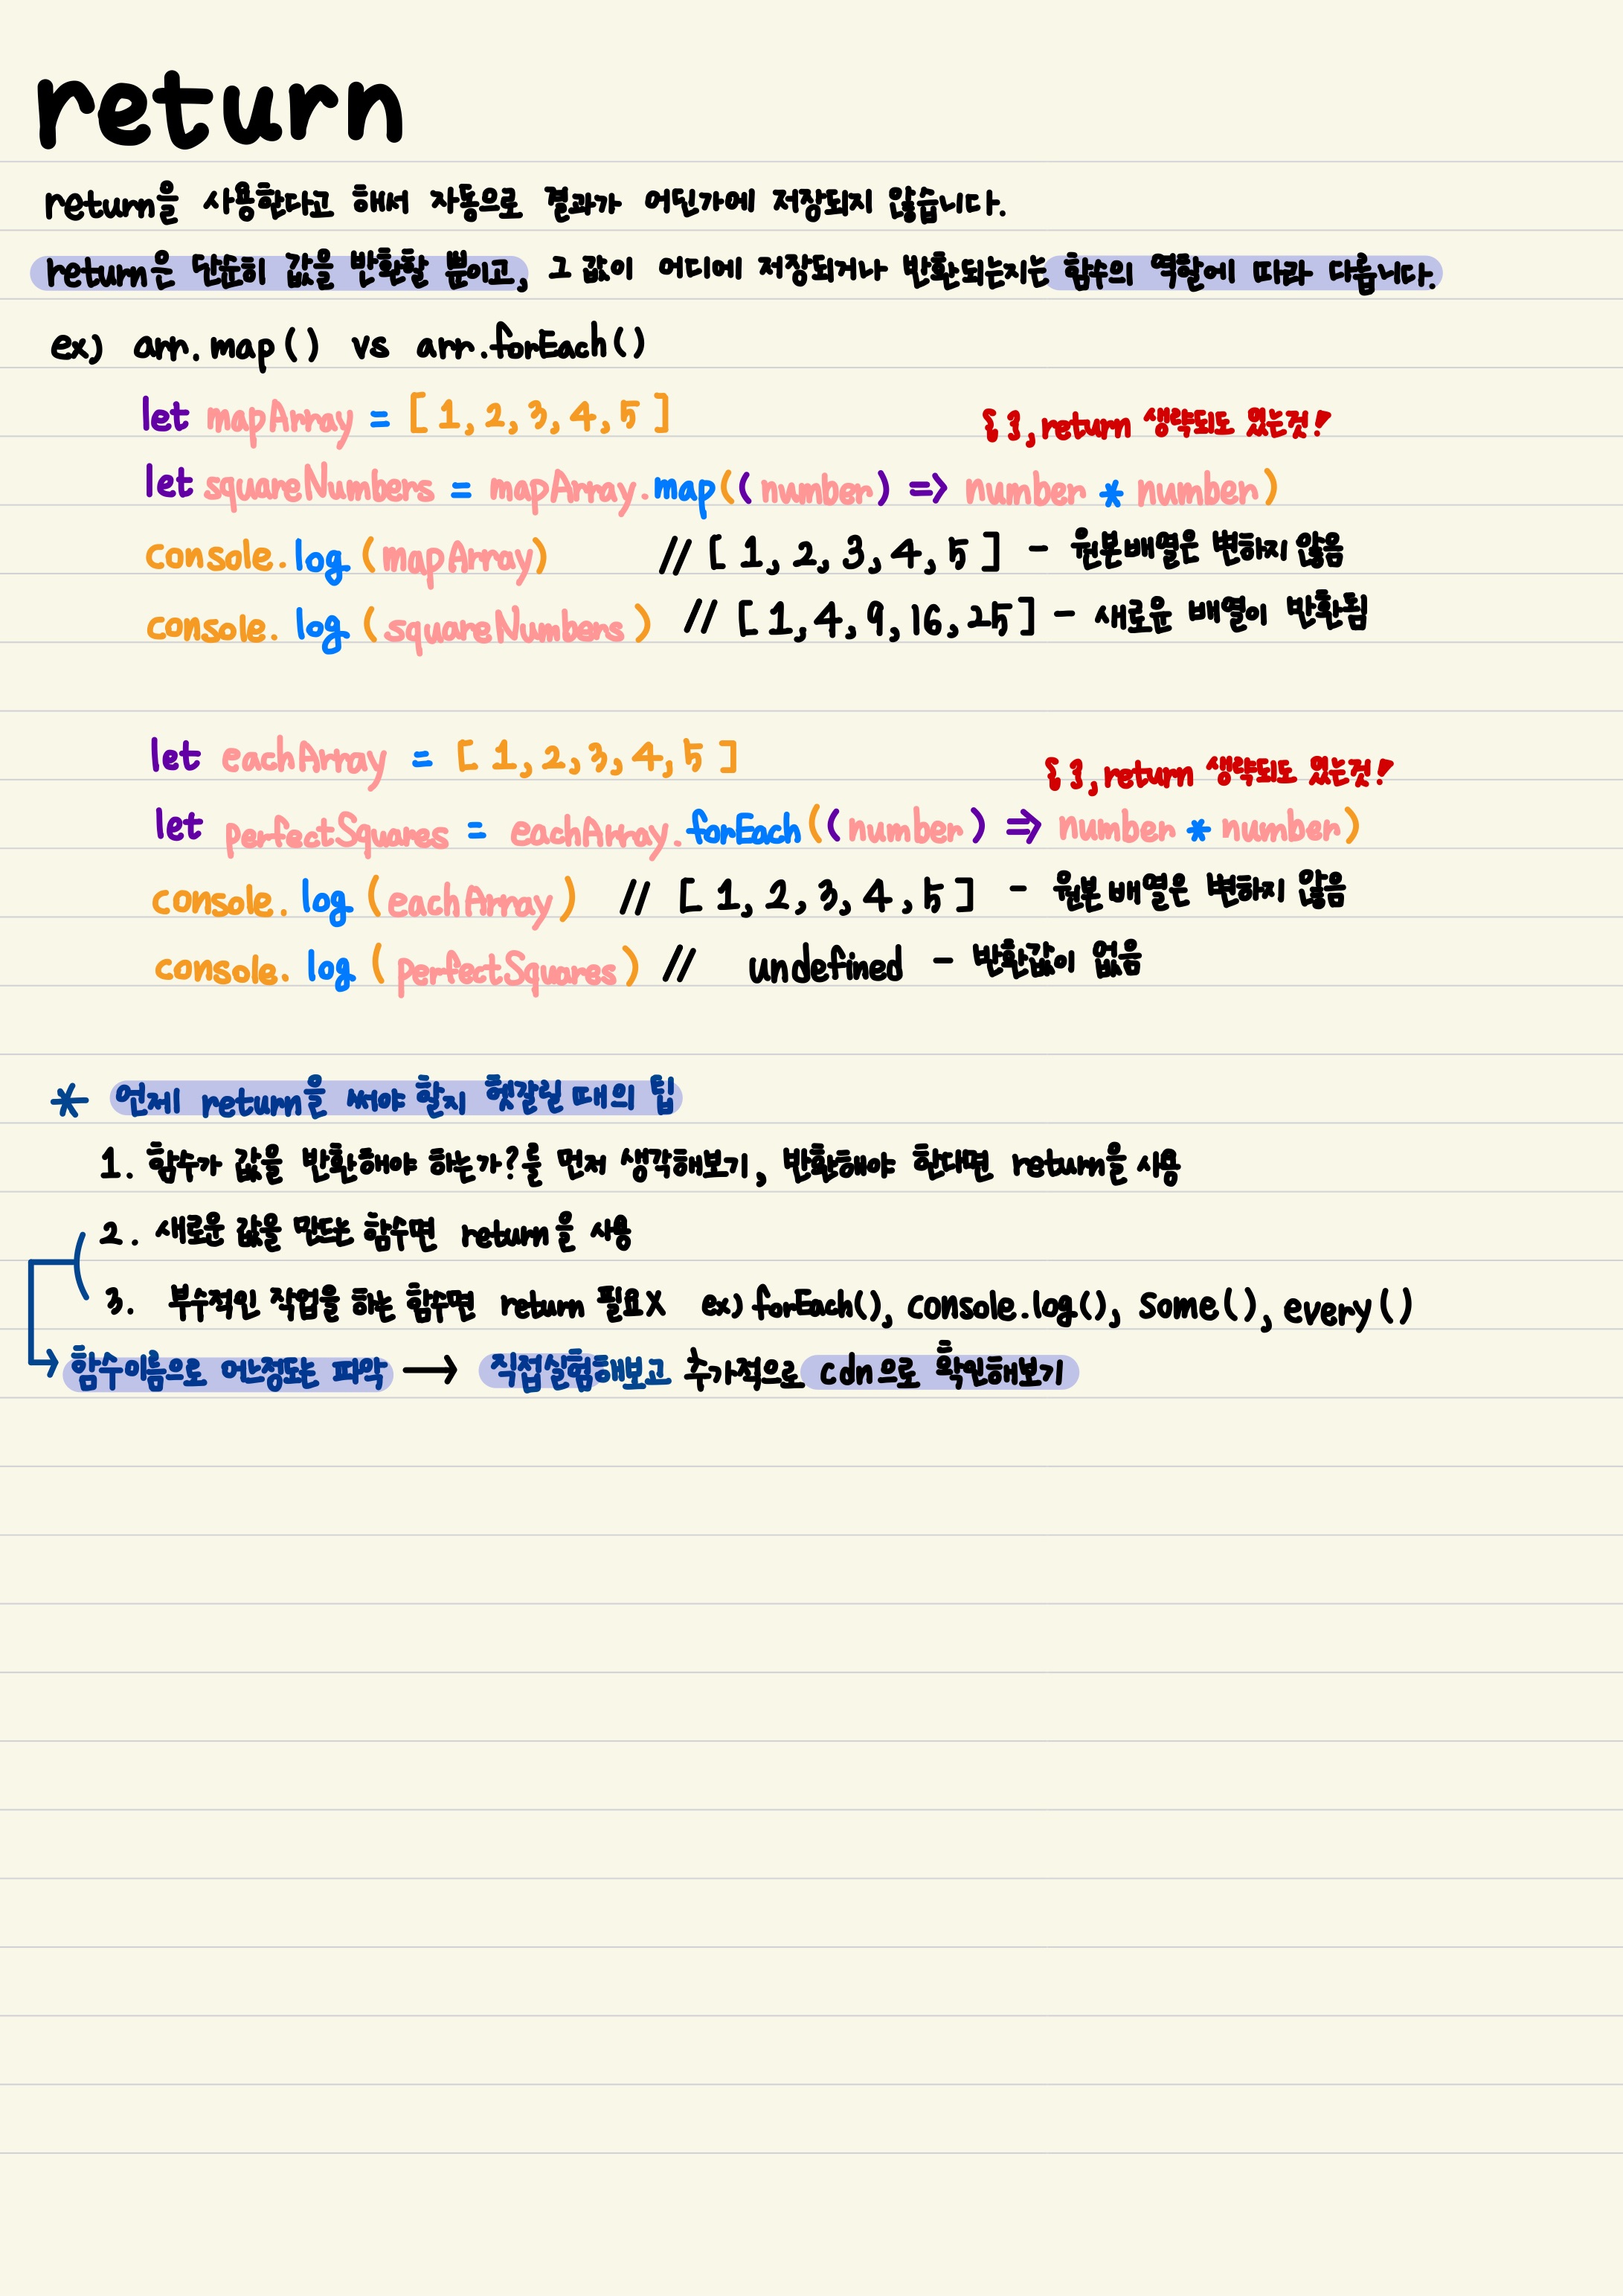 return
return을 사용한다고 해서 자동으로 결과가 어딘가에 저장되지 않습니다.
return은 단순히 값을 반환할 뿐이고, 그 값이 어디에 저장되거나 반환되는지는 함수의 역할에 따라 다릅니다.
ex) arr.map() vs arr.forEach()
let mapArray = [ 1, 2, 3, 4, 5 ]
{ }, return 생략되도 있는것!
let squareNumbers = mapArray.map((number) => number * number)
console.log (mapArray) // [ 1, 2, 3, 4, 5 ] - 원본배열은 변하지 않음
console.log (squareNumbers) // [ 1, 4, 9, 16, 25 ] - 새로운 배열이 반환됨
let eachArray = [ 1, 2, 3, 4, 5 ]
{ }, return 생략되도 있는것!
let perfectSquares = eachArray.forEach((number) => number * number)
console.log (eachArray) // [ 1, 2, 3, 4, 5 ] - 원본 배열은 변하지 않음
console.log (perfectSquares) // undefined - 반환값이 없음
* 언제 return을 써야 할지 헷갈릴 때의 팁
1. 함수가 값을 반환해야 하는가?를 먼저 생각해보기, 반환해야 한다면 return을 사용
2. 새로운 값을 만드는 함수면 return을 사용
3. 부수적인 작업을 하는 함수면 return 필요X ex) forEach(), console.log(), some(), every()
함수이름으로 어느정도는 파악 → 직접실험해보고 추가적으로 cdn으로 확인해보기